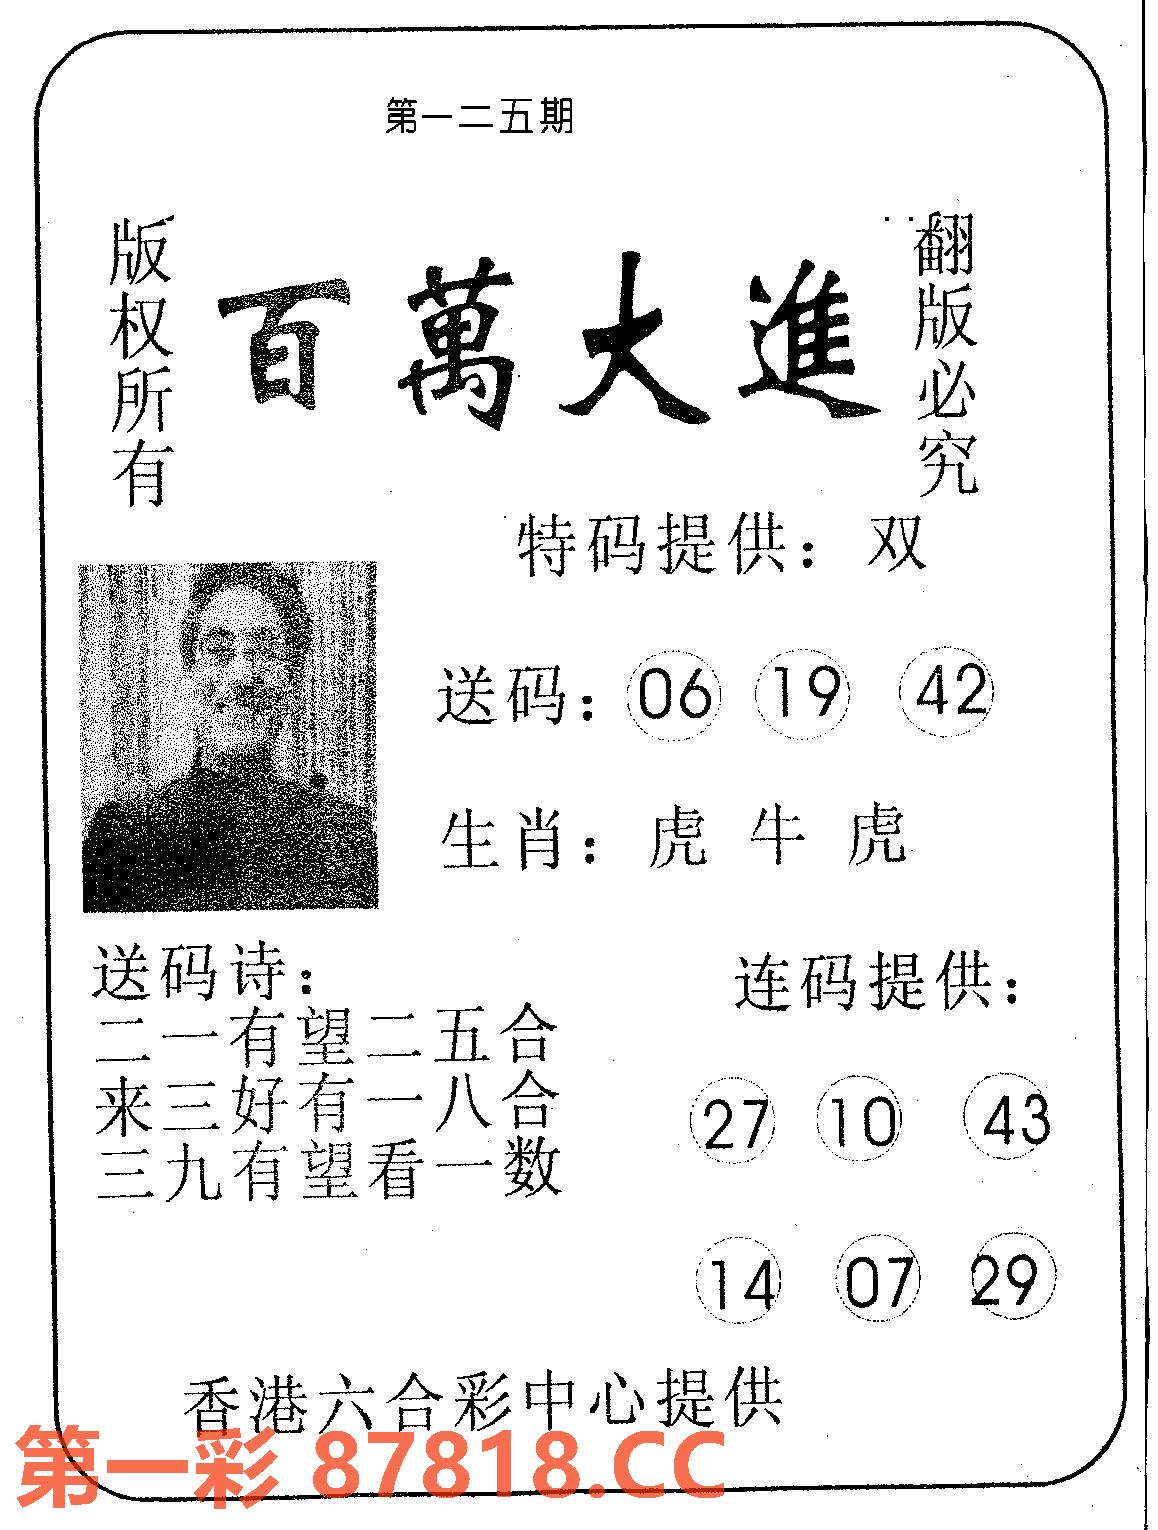 第一二五期
版权所有
百萬大進
翻版必究
特码提供：双
送码：06 19 42
生肖：虎 牛 虎
送码诗：
二一有望二五合
来三好有一八合
三九有望看一数
连码提供：
27 10 43
14 07 29
香港六合彩中心提供
第一彩 87818.CC